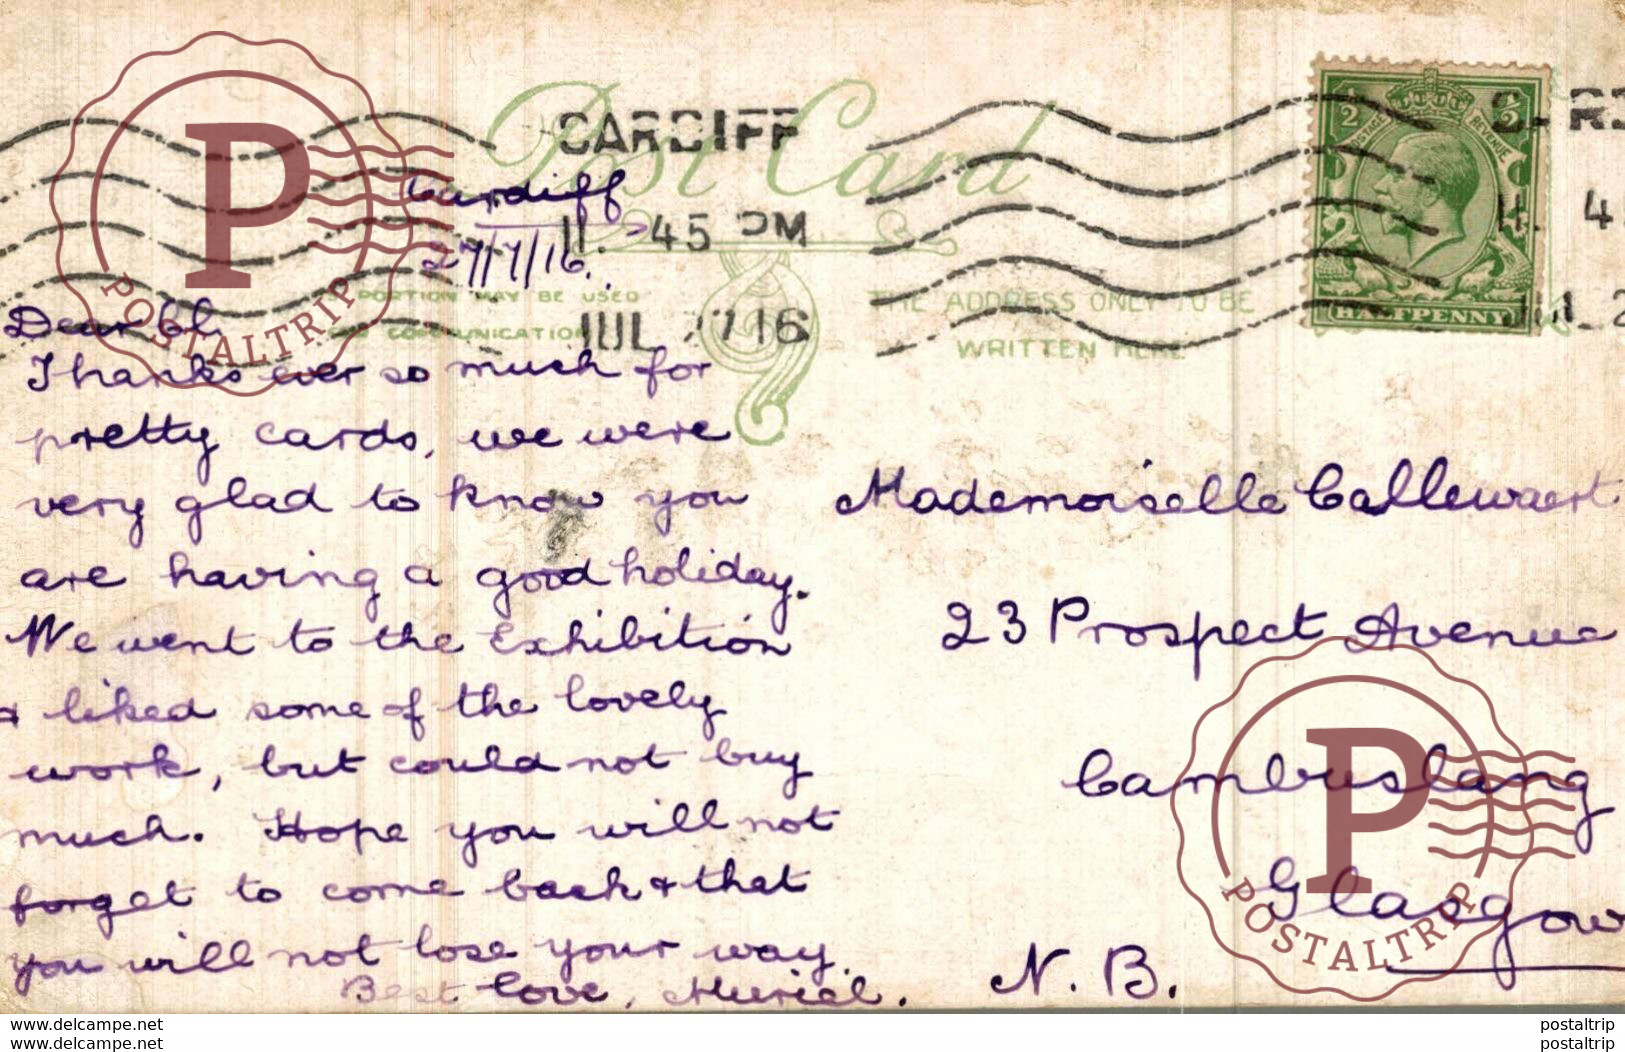 Post Card
CARDIFF
Cardiff
27/7/16.
11. 45 PM
JUL 27 16
PORTION MAY BE USED
COMMUNICATION
THE ADDRESS ONLY TO BE
WRITTEN HERE
½ POSTAGE REVENUE ½
HALFPENNY
Dear
Thanks ever so much for
pretty cards, we were
very glad to know you
are having a good holiday.
We went to the Exhibition
& liked some of the lovely
work, but could not buy
much. Hope you will not
forget to come back & that
you will not lose your way.
Best love, Muriel.
Mademoiselle Callewaert
23 Prospect Avenue
Cambuslang
Glasgow
N. B.
P
POSTALTRIP
P
POSTALTRIP
www.delcampe.net
www.delcampe.net
postaltrip
postaltrip